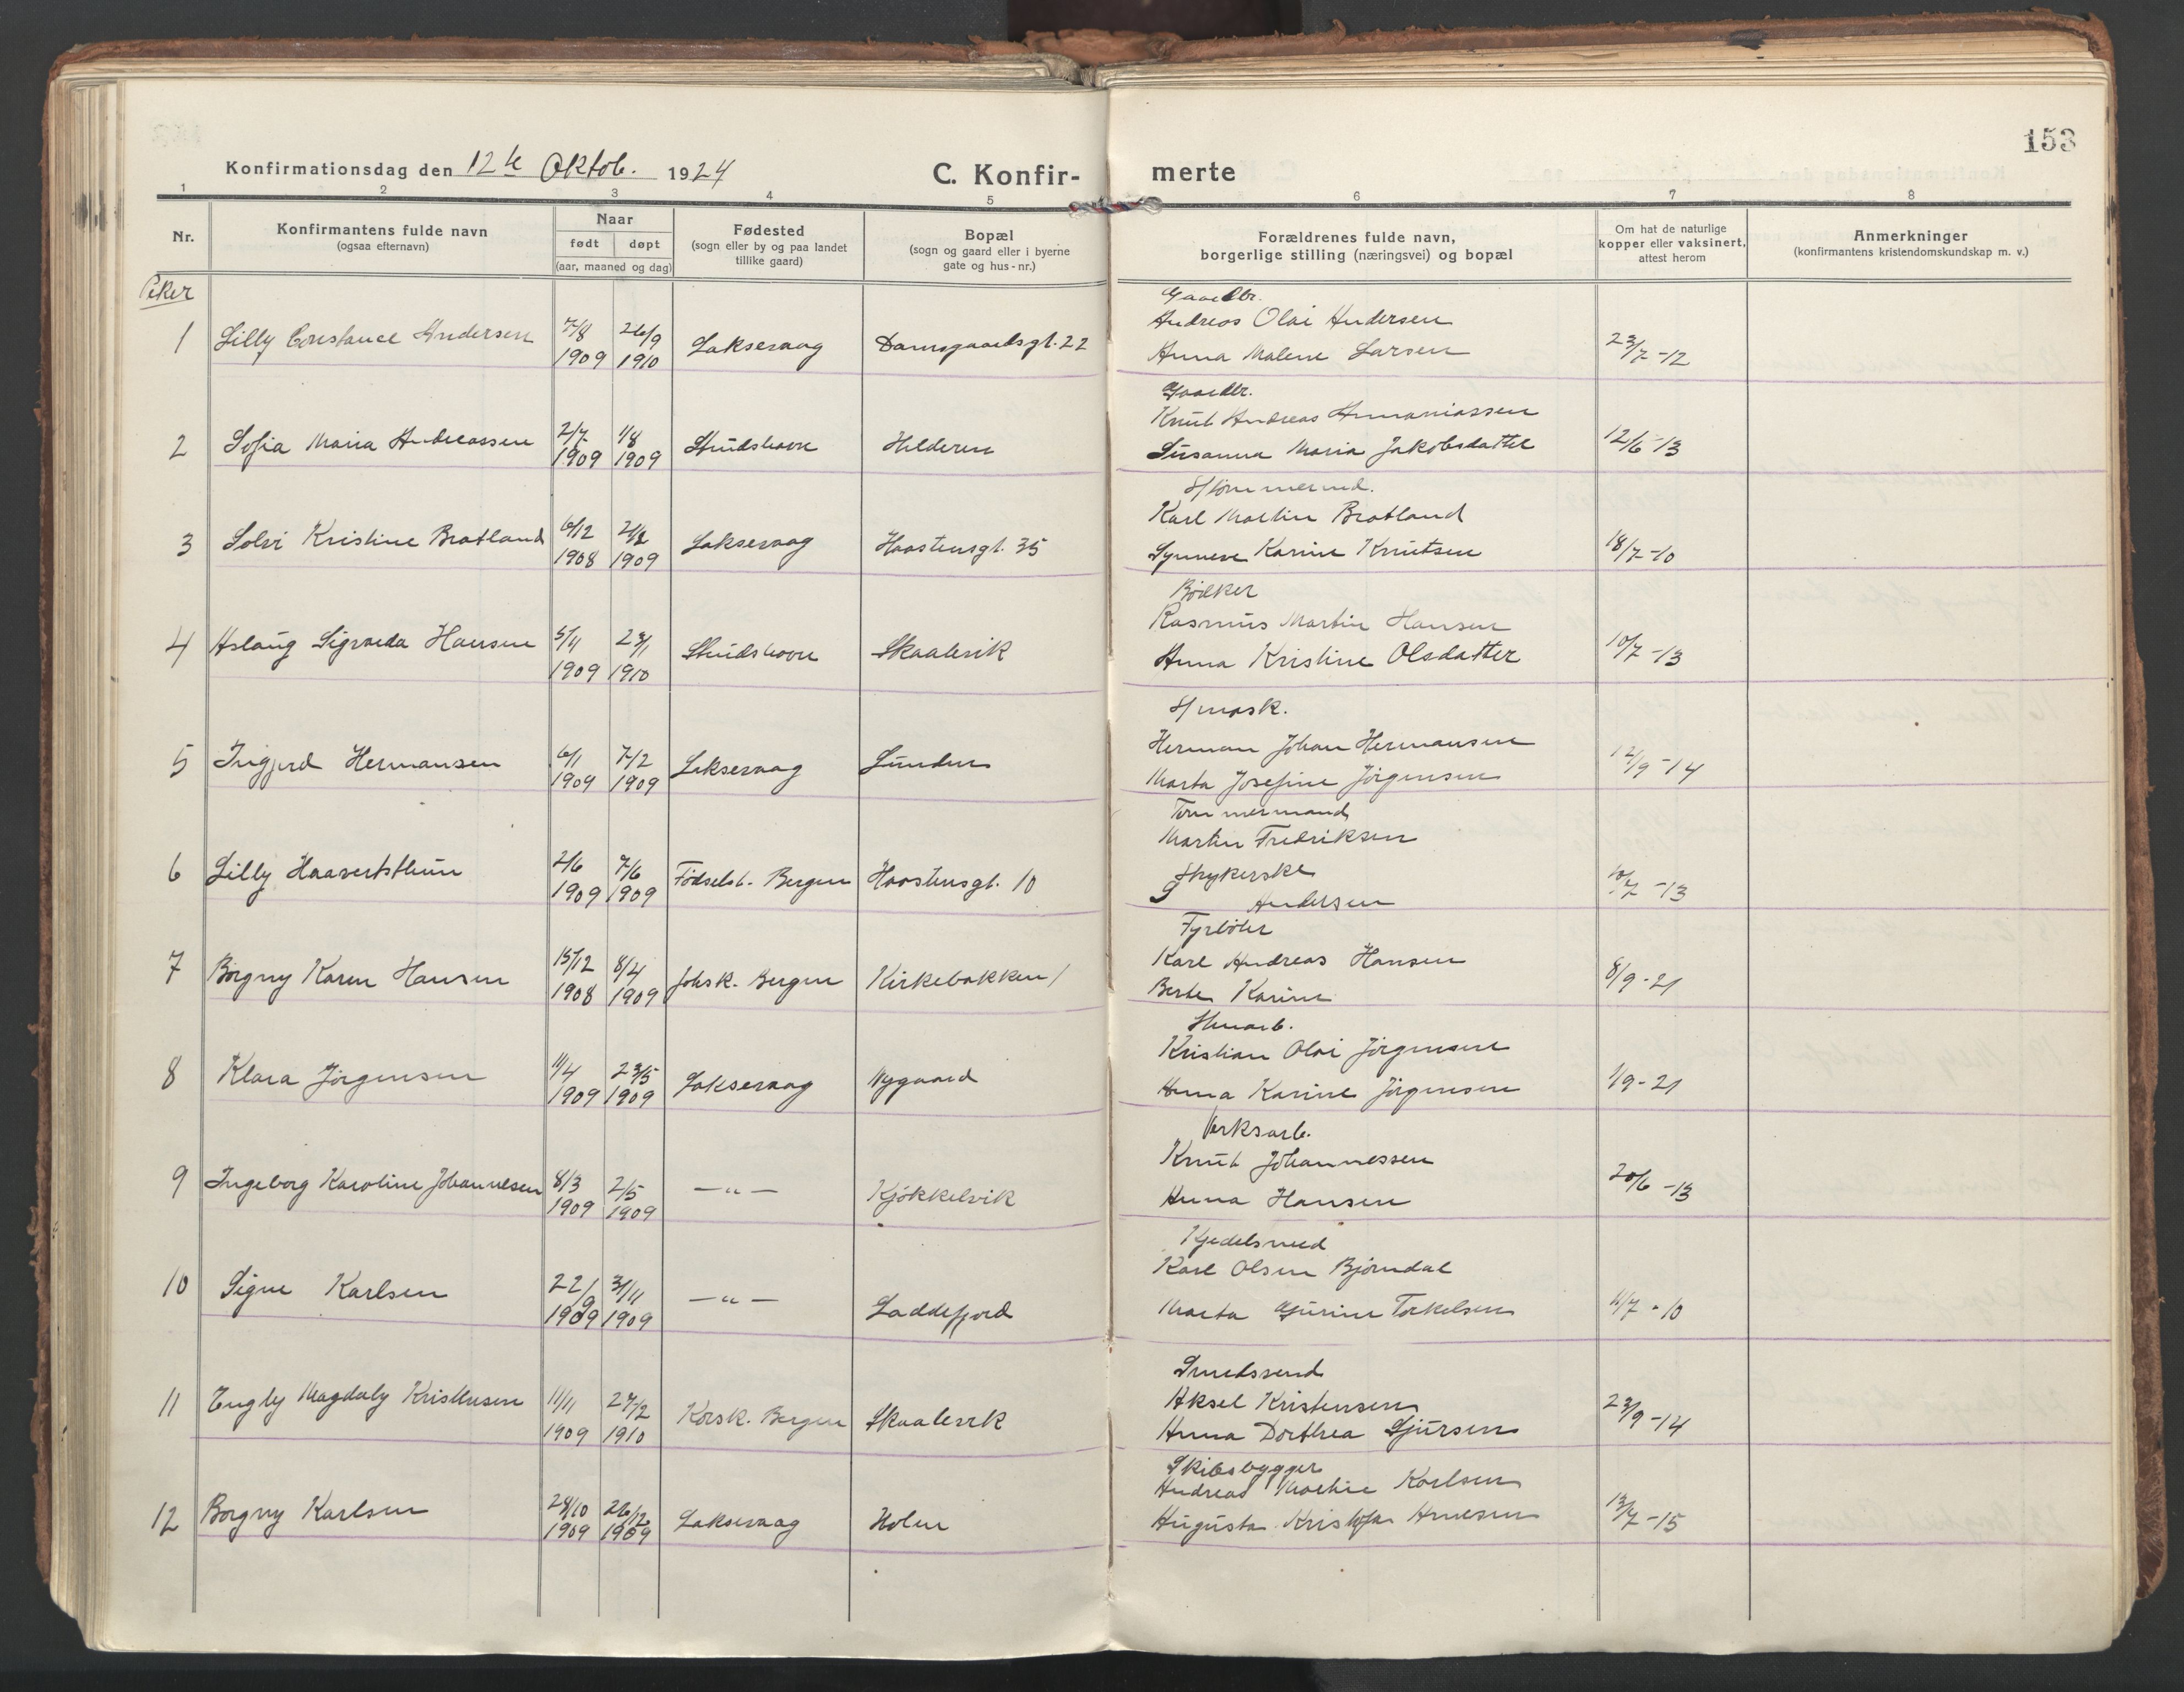 153
Konfirmationsdag den 12te Oktob. 1924
C. Konfir-
merte
1 2 3 4 5 6 7 8
Nr.
Konfirmantens fulde navn
(ogsaa efternavn)
Naar
født døpt
(aar, maaned og dag)
Fødested
(sogn eller by og paa landet
tillike gaard)
Bopæl
(sogn og gaard eller i byerne
gate og hus-nr.)
Forældrenes fulde navn,
borgerlige stilling (næringsvei) og bopæl
Om hat de naturlige
kopper eller vaksinert,
attest herom
Anmerkninger
(konfirmantens kristendomskundskap m. v.)
Piker
Gaardbr.
Andreas Olai Andersen
1 Lilly Constance Andersen 7/8 1909 26/9 1910 Laksevaag Damsgaardsgt. 22
Anna Malene Larsen 23/7 -12
Gaardbr.
Knut Andreas Ananiassen
2 Sofia Maria Andreassen 2/7 1909 1/8 1909 Strudshavn Hilderen
Susanna Maria Jakobsdatter 12/6 -13
Karl Martin Bratland
3 Solvi Kristine Bratland 6/12 1908 21/2 1909 Laksevaag Haastensgt. 35
Synneve Karine Knutsen 18/7 -10
Bödker
Rasmus Martin Hansen
4 Aslaug Sigvarda Hansen 5/11 1909 23/1 1910 Strudshavn Skaalevik
Anna Kristine Olsdatter 10/7 -13
S/mask.
Herman Johan Hermansen
5 Ingjerd Hermansen 6/1 1909 7/2 1909 Laksevaag Lunden
Marta Josefine Jörgensen 12/9 -14
Tömmermand
Martin Fredriksen
Strykerske
6 Lilly Haavertsthun 2/6 1909 7/6 1909 Födselst. Bergen Haastensgt. 10
S Andersen 10/7 -13
Fyrböter
Karl Andreas Hansen
7 Borgny Karen Hansen 15/12 1908 8/4 1909 Johsk. Bergen Kirkebakken 1
Berte Karine 8/9 - 21
Kristian Olai Jörgensen
8 Klara Jörgensen 11/4 1909 23/5 1909 Laksevaag Nygaard
Anna Karine Jörgensen 1/9 - 21
Verksarb.
Knut Johannessen
9 Ingeborg Karoline Johannesen 8/3 1909 2/5 1909 —"— Kjökkelvik
Anna Hansen 20/6 -13
Kjedelsmed
Karl Olsen Björndal
10 Signe Karlsen 22/9 1909 3/11 1909 —"— Laddefjord
Marta Gurine Torkelsen 11/7 - 10
Smedssvend
Aksel Kristensen
11 Engly Magdaly Kristensen 11/11 1909 27/2 1910 Korsk. Bergen Skaalevik
Anna Dorthea Sjursen 23/9 -14
Skibsbygger
Andreas Martin Karlsen
12 Borgny Karlsen 28/10 1909 26/12 1909 Laksevaag Holen
Augusta Kristofa Arnesen 13/7 -15